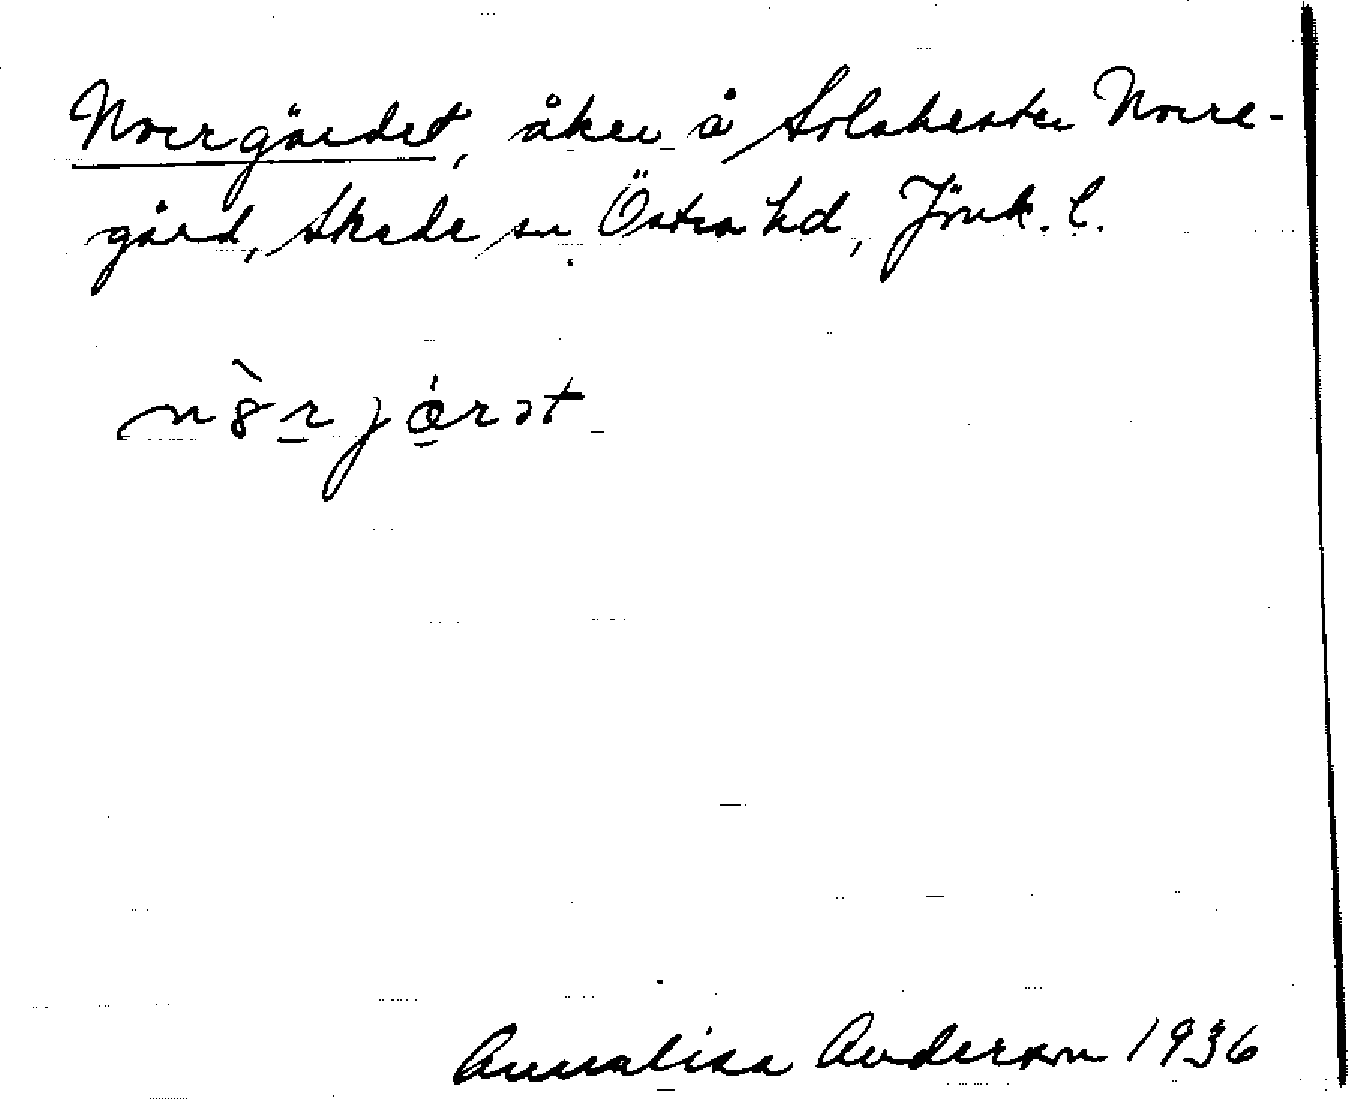 Norrgärdet, åker å Solaberta Norre-
gård, Skede sn Östra hd, Jönk. l.
Annalisa Anderson 1936